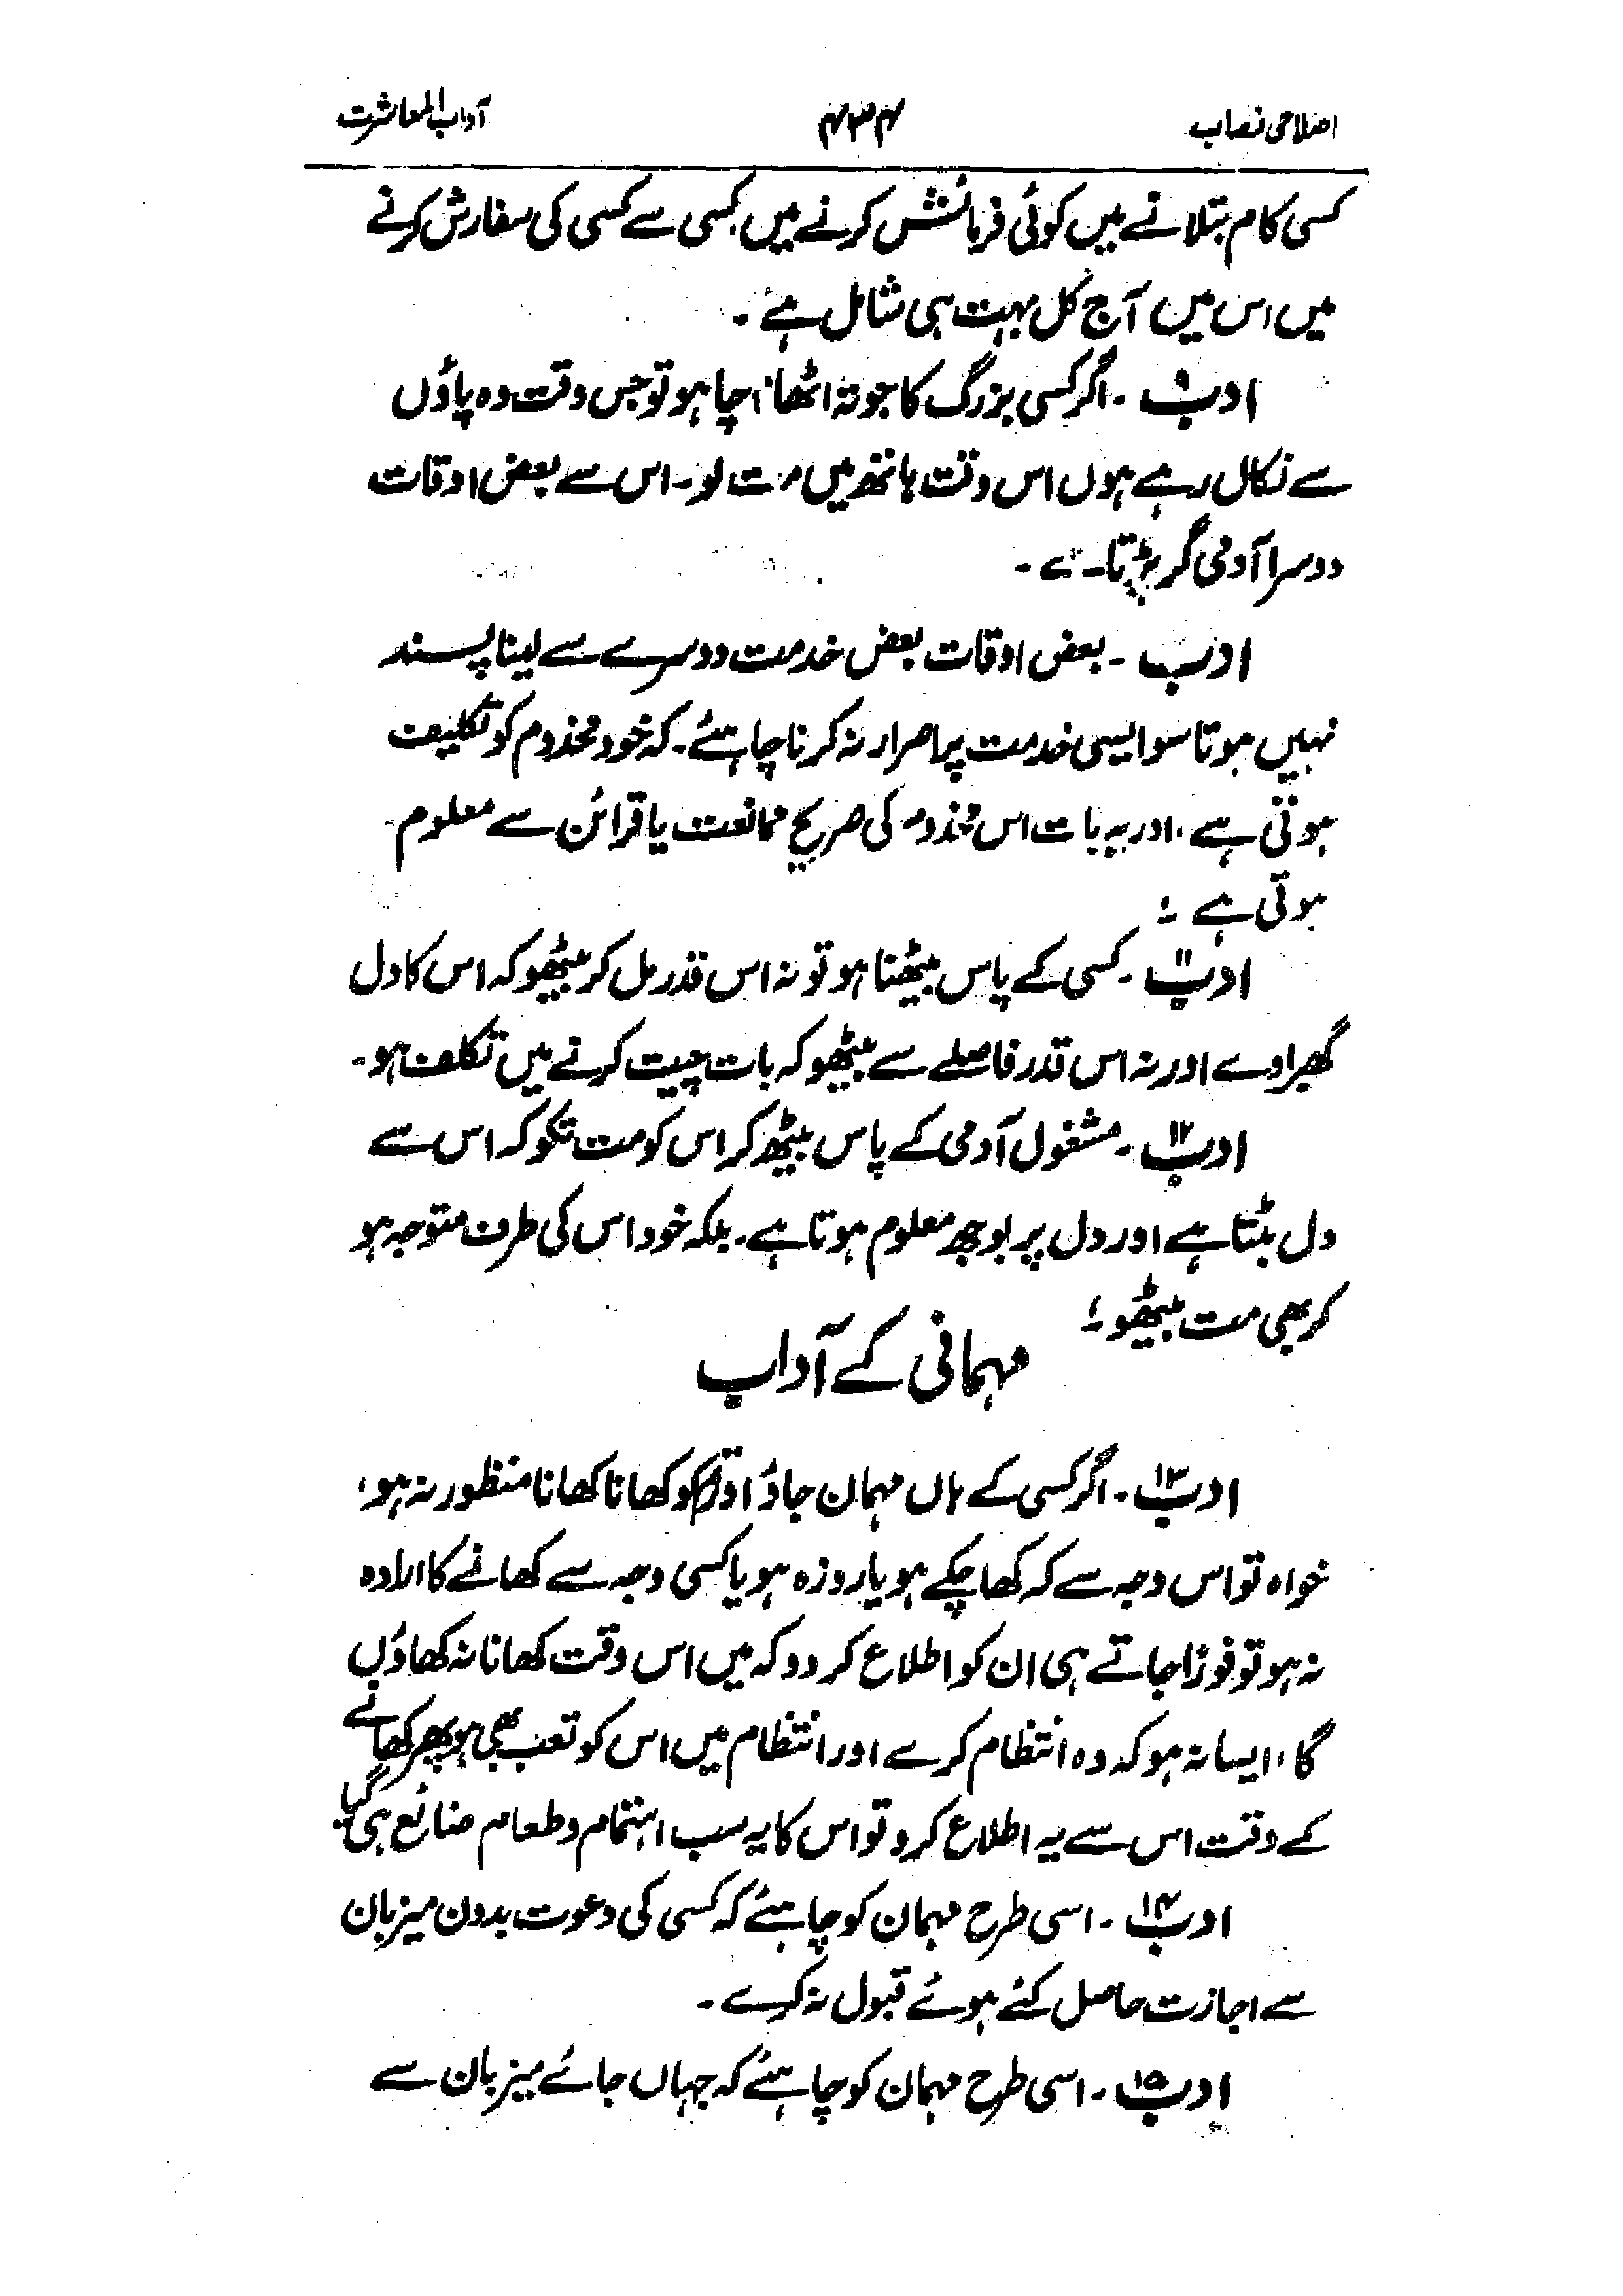 اصلاحی نصاب ۴۳۴ آداب المعاشرت
کسی کام بتلانے میں کوئی فرمائش کرنے میں کسی سے کسی کی سفارش کرنے
میں اس میں آج کل بہت ہی شامل ہے ۔
ادب۹ ۔ اگر کسی بزرگ کا جوتہ اٹھانا چاہو تو جس وقت وہ پاؤں
سے نکال رہے ہوں اس وقت ہاتھ میں مت لو ۔ اس سے بعض اوقات
دوسرا آدمی گر پڑتا ہے ۔
ادب ۔ بعض اوقات بعض خدمت دوسرے سے لینا پسند
نہیں ہوتا سو ایسی خدمت پر اصرار نہ کرنا چاہئے ۔ کہ خود مخدوم کو تکلیف
ہوتی ہے ، اور یہ بات اس مخدوم کی صریح ممانعت یا قرائن سے معلوم
ہوتی ہے ؛
ادب۱۱ ۔ کسی کے پاس بیٹھنا ہو تو نہ اس قدر مل کر بیٹھو کہ اس کا دل
گھبراوے اور نہ اس قدر فاصلے سے بیٹھو کہ بات چیت کرنے میں تکلف ہو ۔
ادب۱۲ ۔ مشغول آدمی کے پاس بیٹھ کر اس کو مت تکو کہ اس سے
دل بٹتا ہے اور دل پر بوجھ معلوم ہوتا ہے ۔ بلکہ خود اس کی طرف متوجہ ہو
کر بھی مت بیٹھو ؛
مہمانی کے آداب
ادب۱۳ ۔ اگر کسی کے ہاں مہمان جاؤ اور تم کو کھانا کھانا منظور نہ ہو ،
خواہ تو اس وجہ سے کہ کھا چکے ہو یا روزہ ہو یا کسی وجہ سے کھانے کا ارادہ
نہ ہو تو فوراً جاتے ہی ان کو اطلاع کر دو کہ میں اس وقت کھانا نہ کھاؤں
گا ، ایسا نہ ہو کہ وہ انتظام کرے اور انتظام میں اس کو تعب بھی ہو پھر کھانے
کے وقت اس سے یہ اطلاع کرو تو اس کا یہ سب اہتمام و طعام ضائع ہی گیا
ادب۱۴ ۔ اسی طرح مہمان کو چاہئے کہ کسی کی دعوت بدون میزبان
سے اجازت حاصل کئے ہوئے قبول نہ کرے ۔
ادب۱۵ ۔ اسی طرح مہمان کو چاہئے کہ جہاں جائے میزبان سے